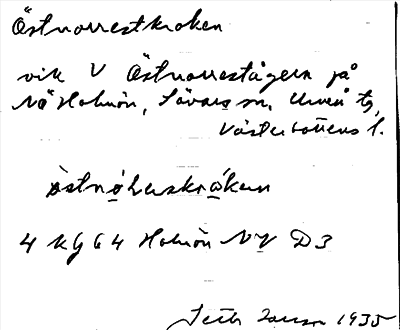 Östnorrestkroken
vik V Östnorrestågern på
NÖ Holmön, Sävars sn, Umeå tg,
Västerbottens l.
östnǫrską̊kan
4 Kg 64 Holmön NV D3
1935